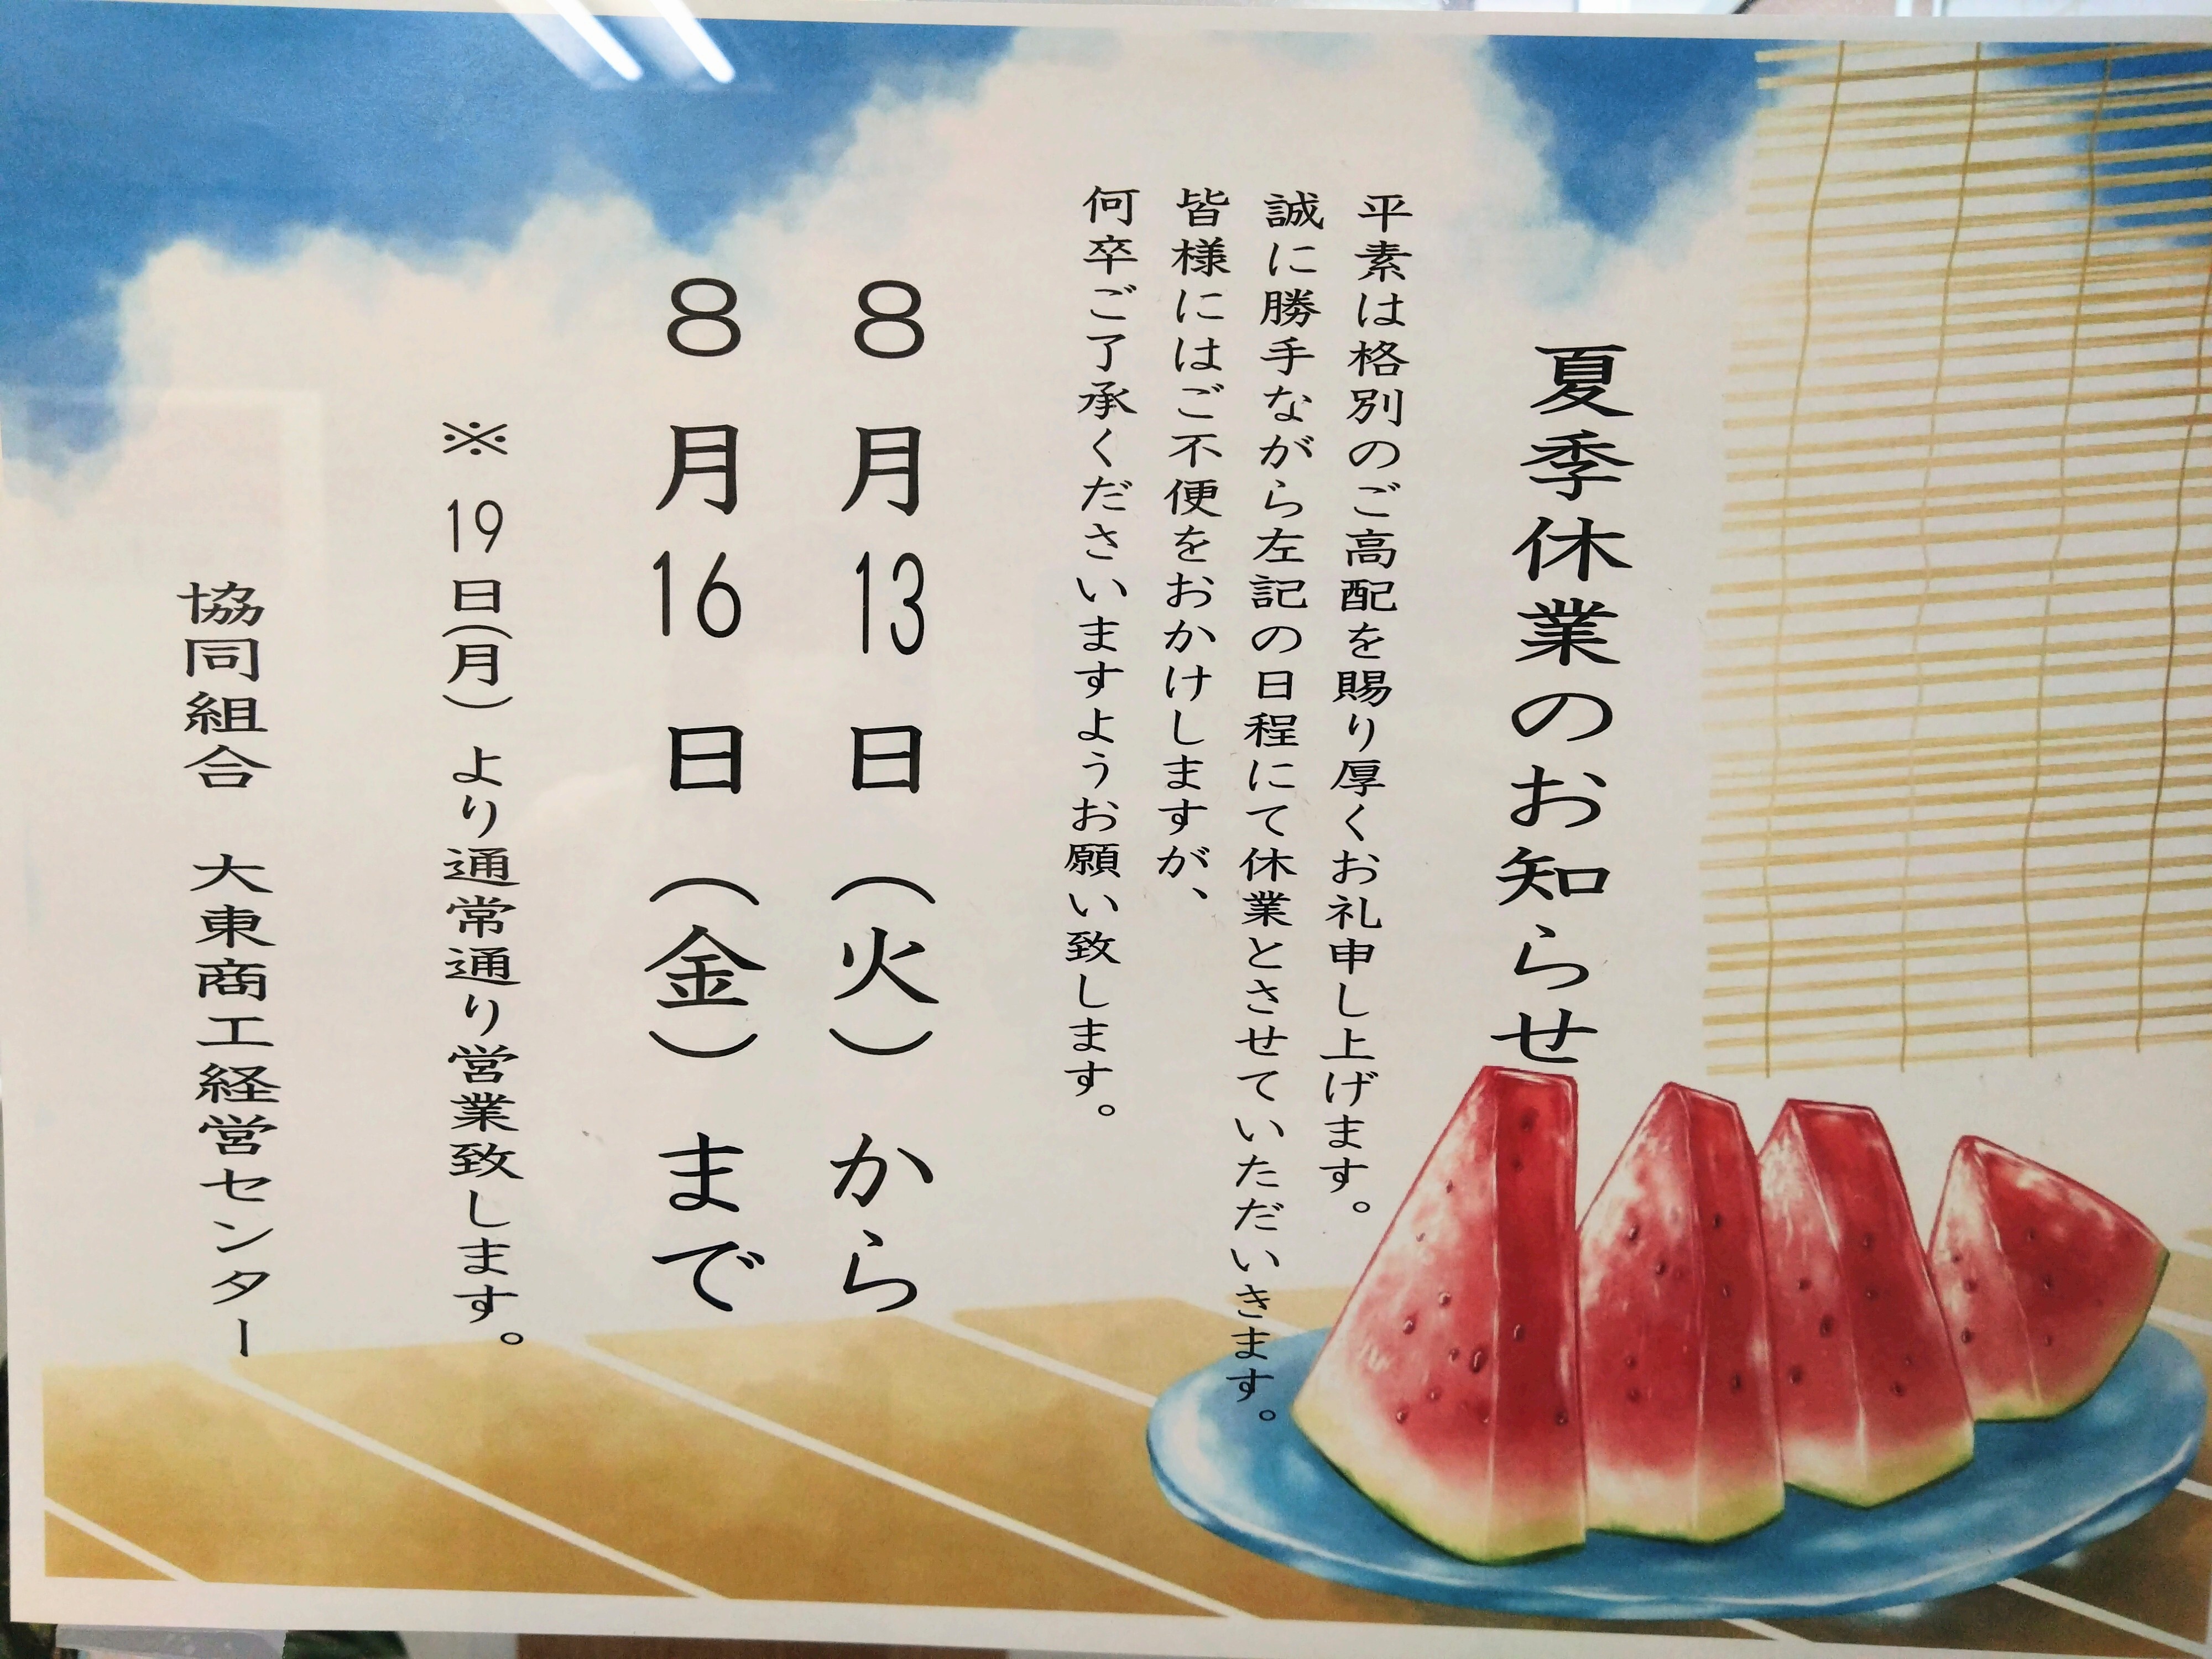 夏季休業のお知らせ
平素は格別のご高配を賜り厚くお礼申し上げます。
誠に勝手ながら左記の日程にて休業とさせていただいきます。
皆様にはご不便をおかけしますが、
何卒ご了承くださいますようお願い致します。
8月13日（火）から
8月16日（金）まで
※19日（月）より通常通り営業致します。
協同組合　大東商工経営センター